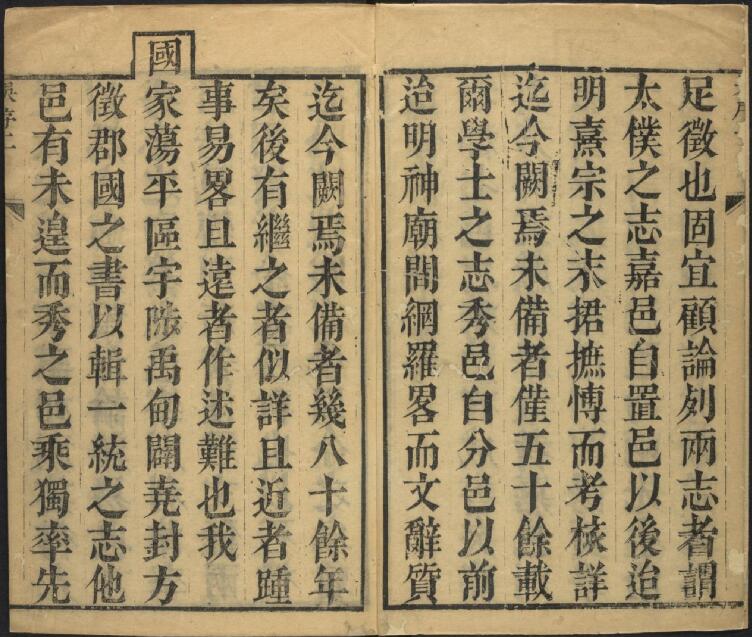 足徵也固宜顧論列兩志者謂
太僕之志嘉邑自置邑以後迨
明熹宗之末捃摭愽而考核詳
迄今闕焉未備者僅五十餘載
爾學士之志秀邑自分邑以前
迨明神廟閤網羅畧而文辭質
迄今闕焉未備者幾八十餘年
矣後有繼之者似詳且近者踵
事易畧且遠者作述難也我
國家蕩平區宇陟禹甸闢堯封方
徵郡國之書以輯一統之志他
邑有未遑而秀之邑乘獨率先